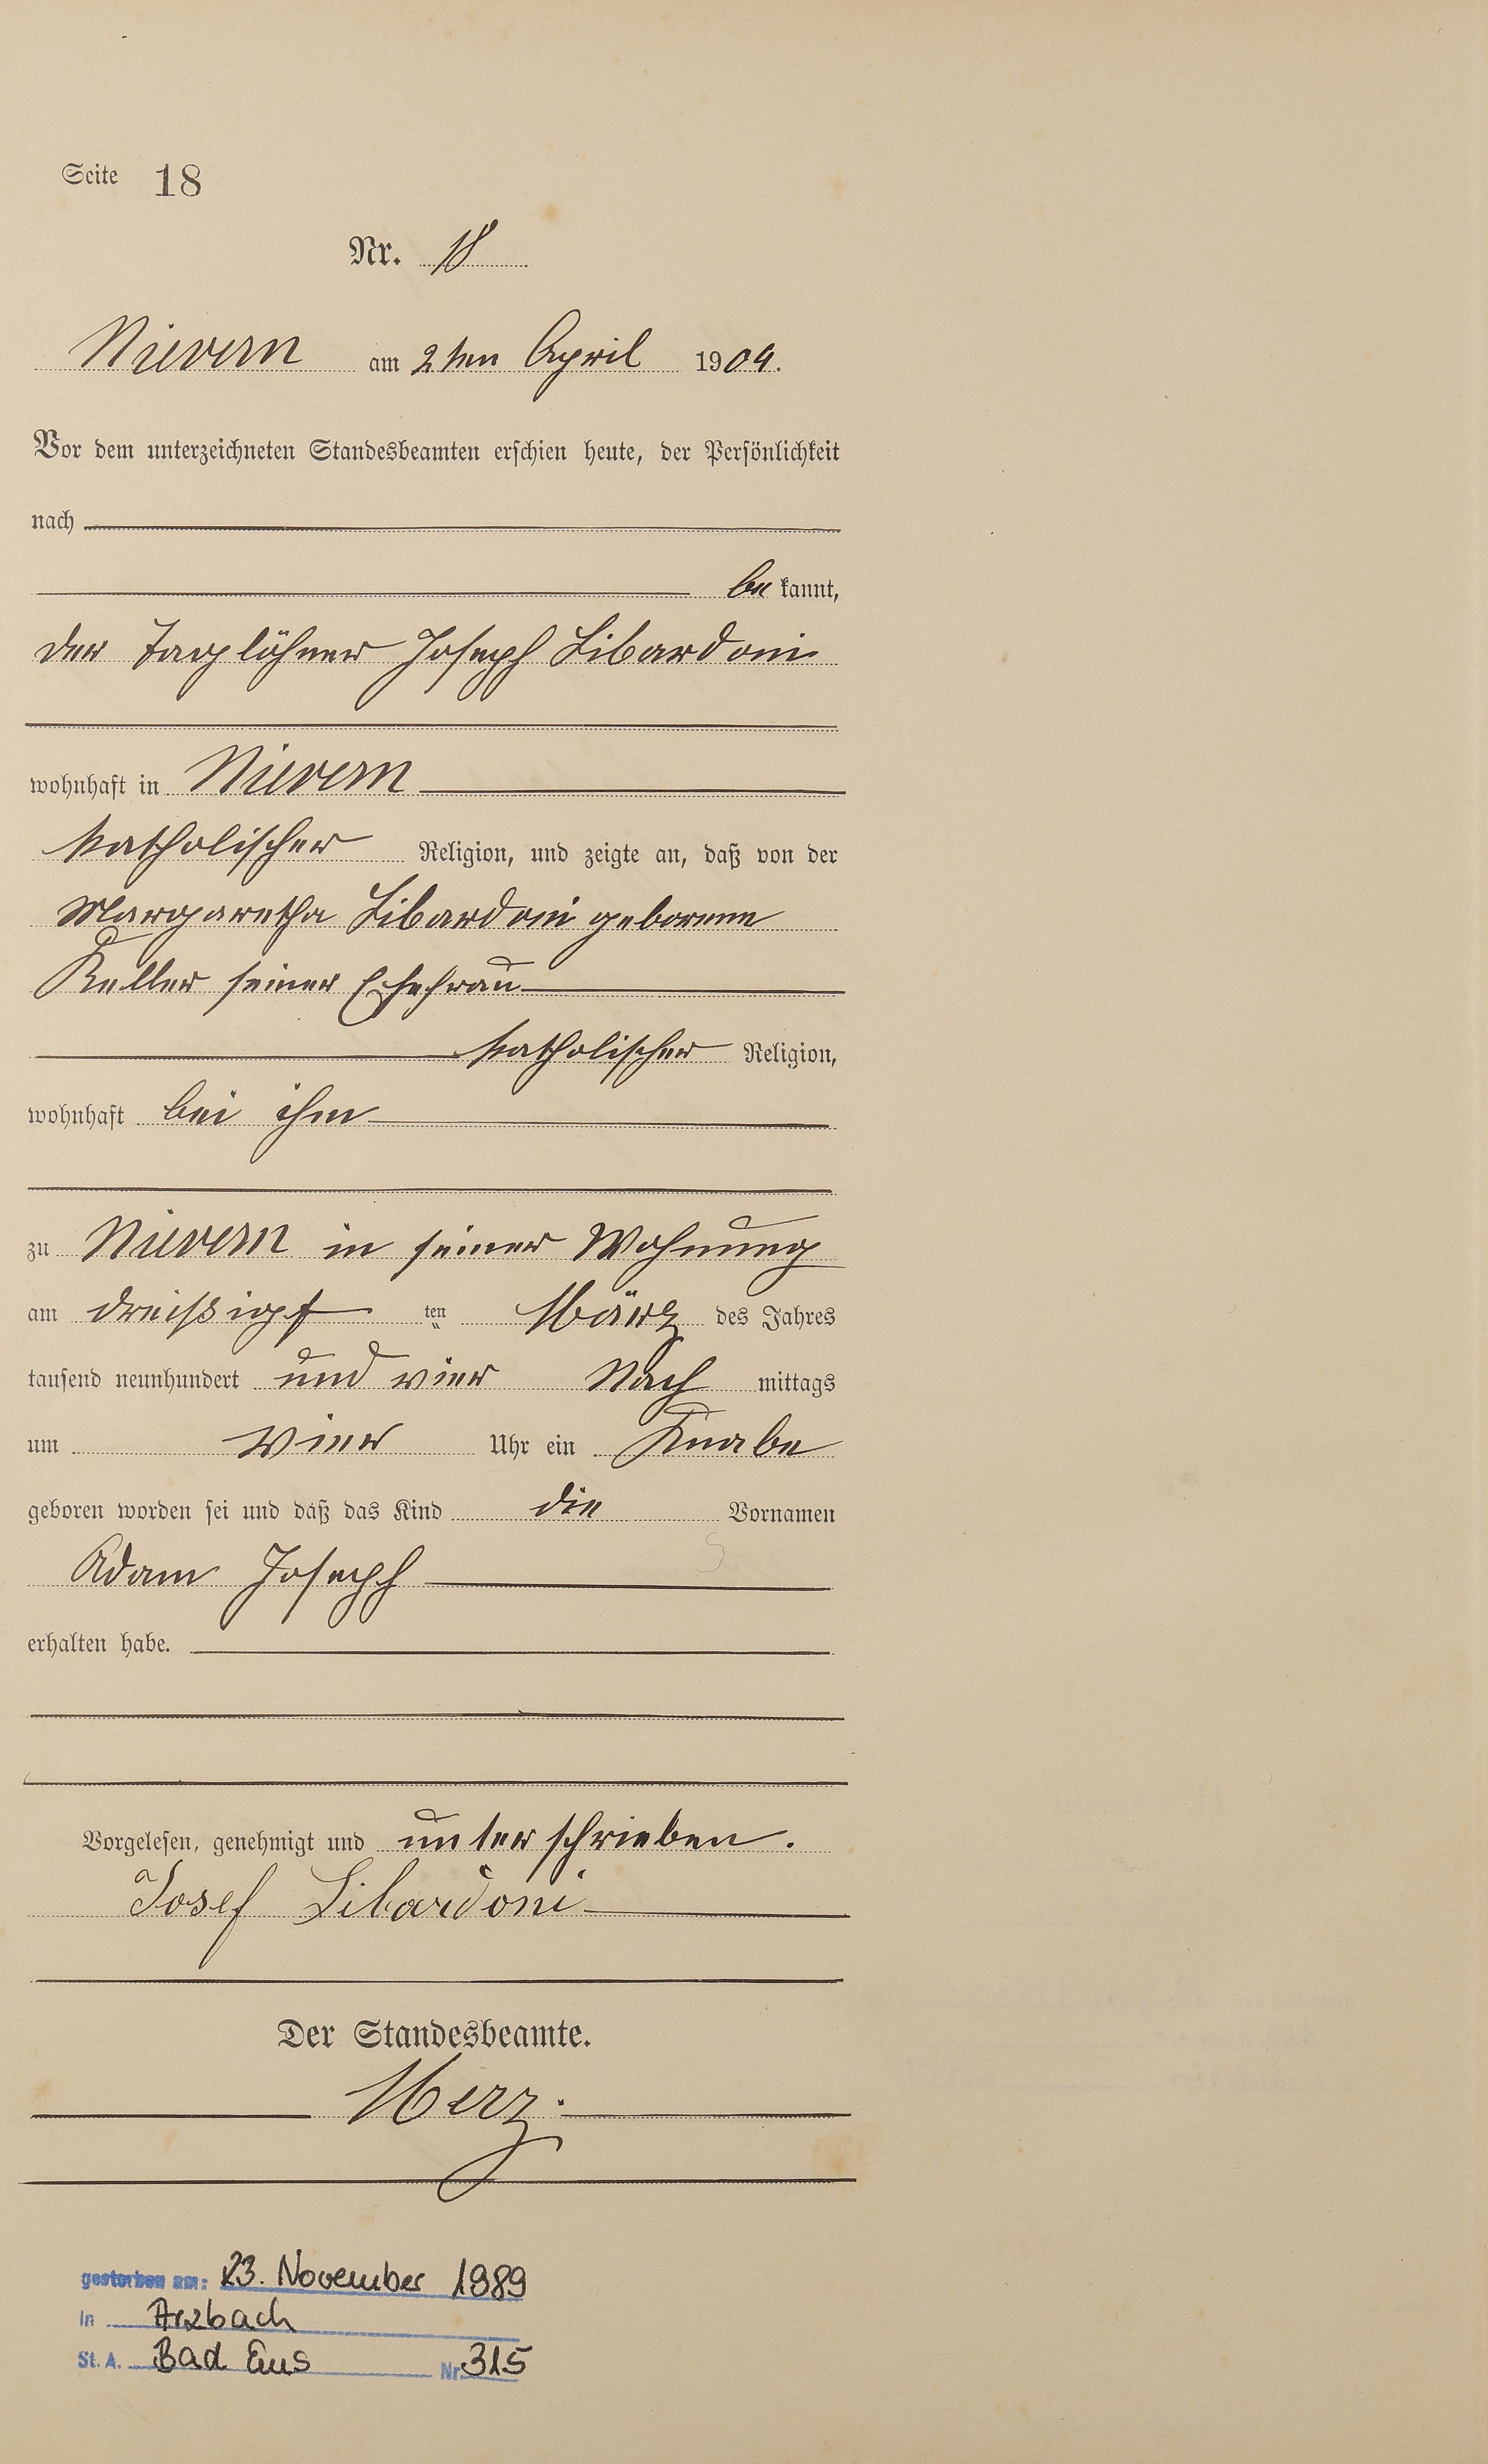 Seite 18
Nr. 18
Nievern am 2ten April 1904.
Vor dem unterzeichneten Standesbeamten erschien heute, der Persönlichkeit
nach
be kannt,
der Taglöhner Joseph Libardoni
wohnhaft in Nievern
katholischer Religion, und zeigte an, daß von der
Margaretha Libardoni geborene
Keller seiner Ehefrau
katholischer Religion,
wohnhaft bei ihm
zu Nievern in seiner Wohnung
am dreißigst ten März des Jahres
tausend neunhundert und vier Nach mittags
um vier Uhr ein Knabe
geboren worden sei und daß das Kind die Vornamen
Adam Joseph
erhalten habe.
Vorgelesen, genehmigt und unterschrieben.
Josef Libardoni
Der Standesbeamte.
Merz.
gestorben am: 23. November 1989
in Arzbach
St. A. Bad Ems Nr. 315